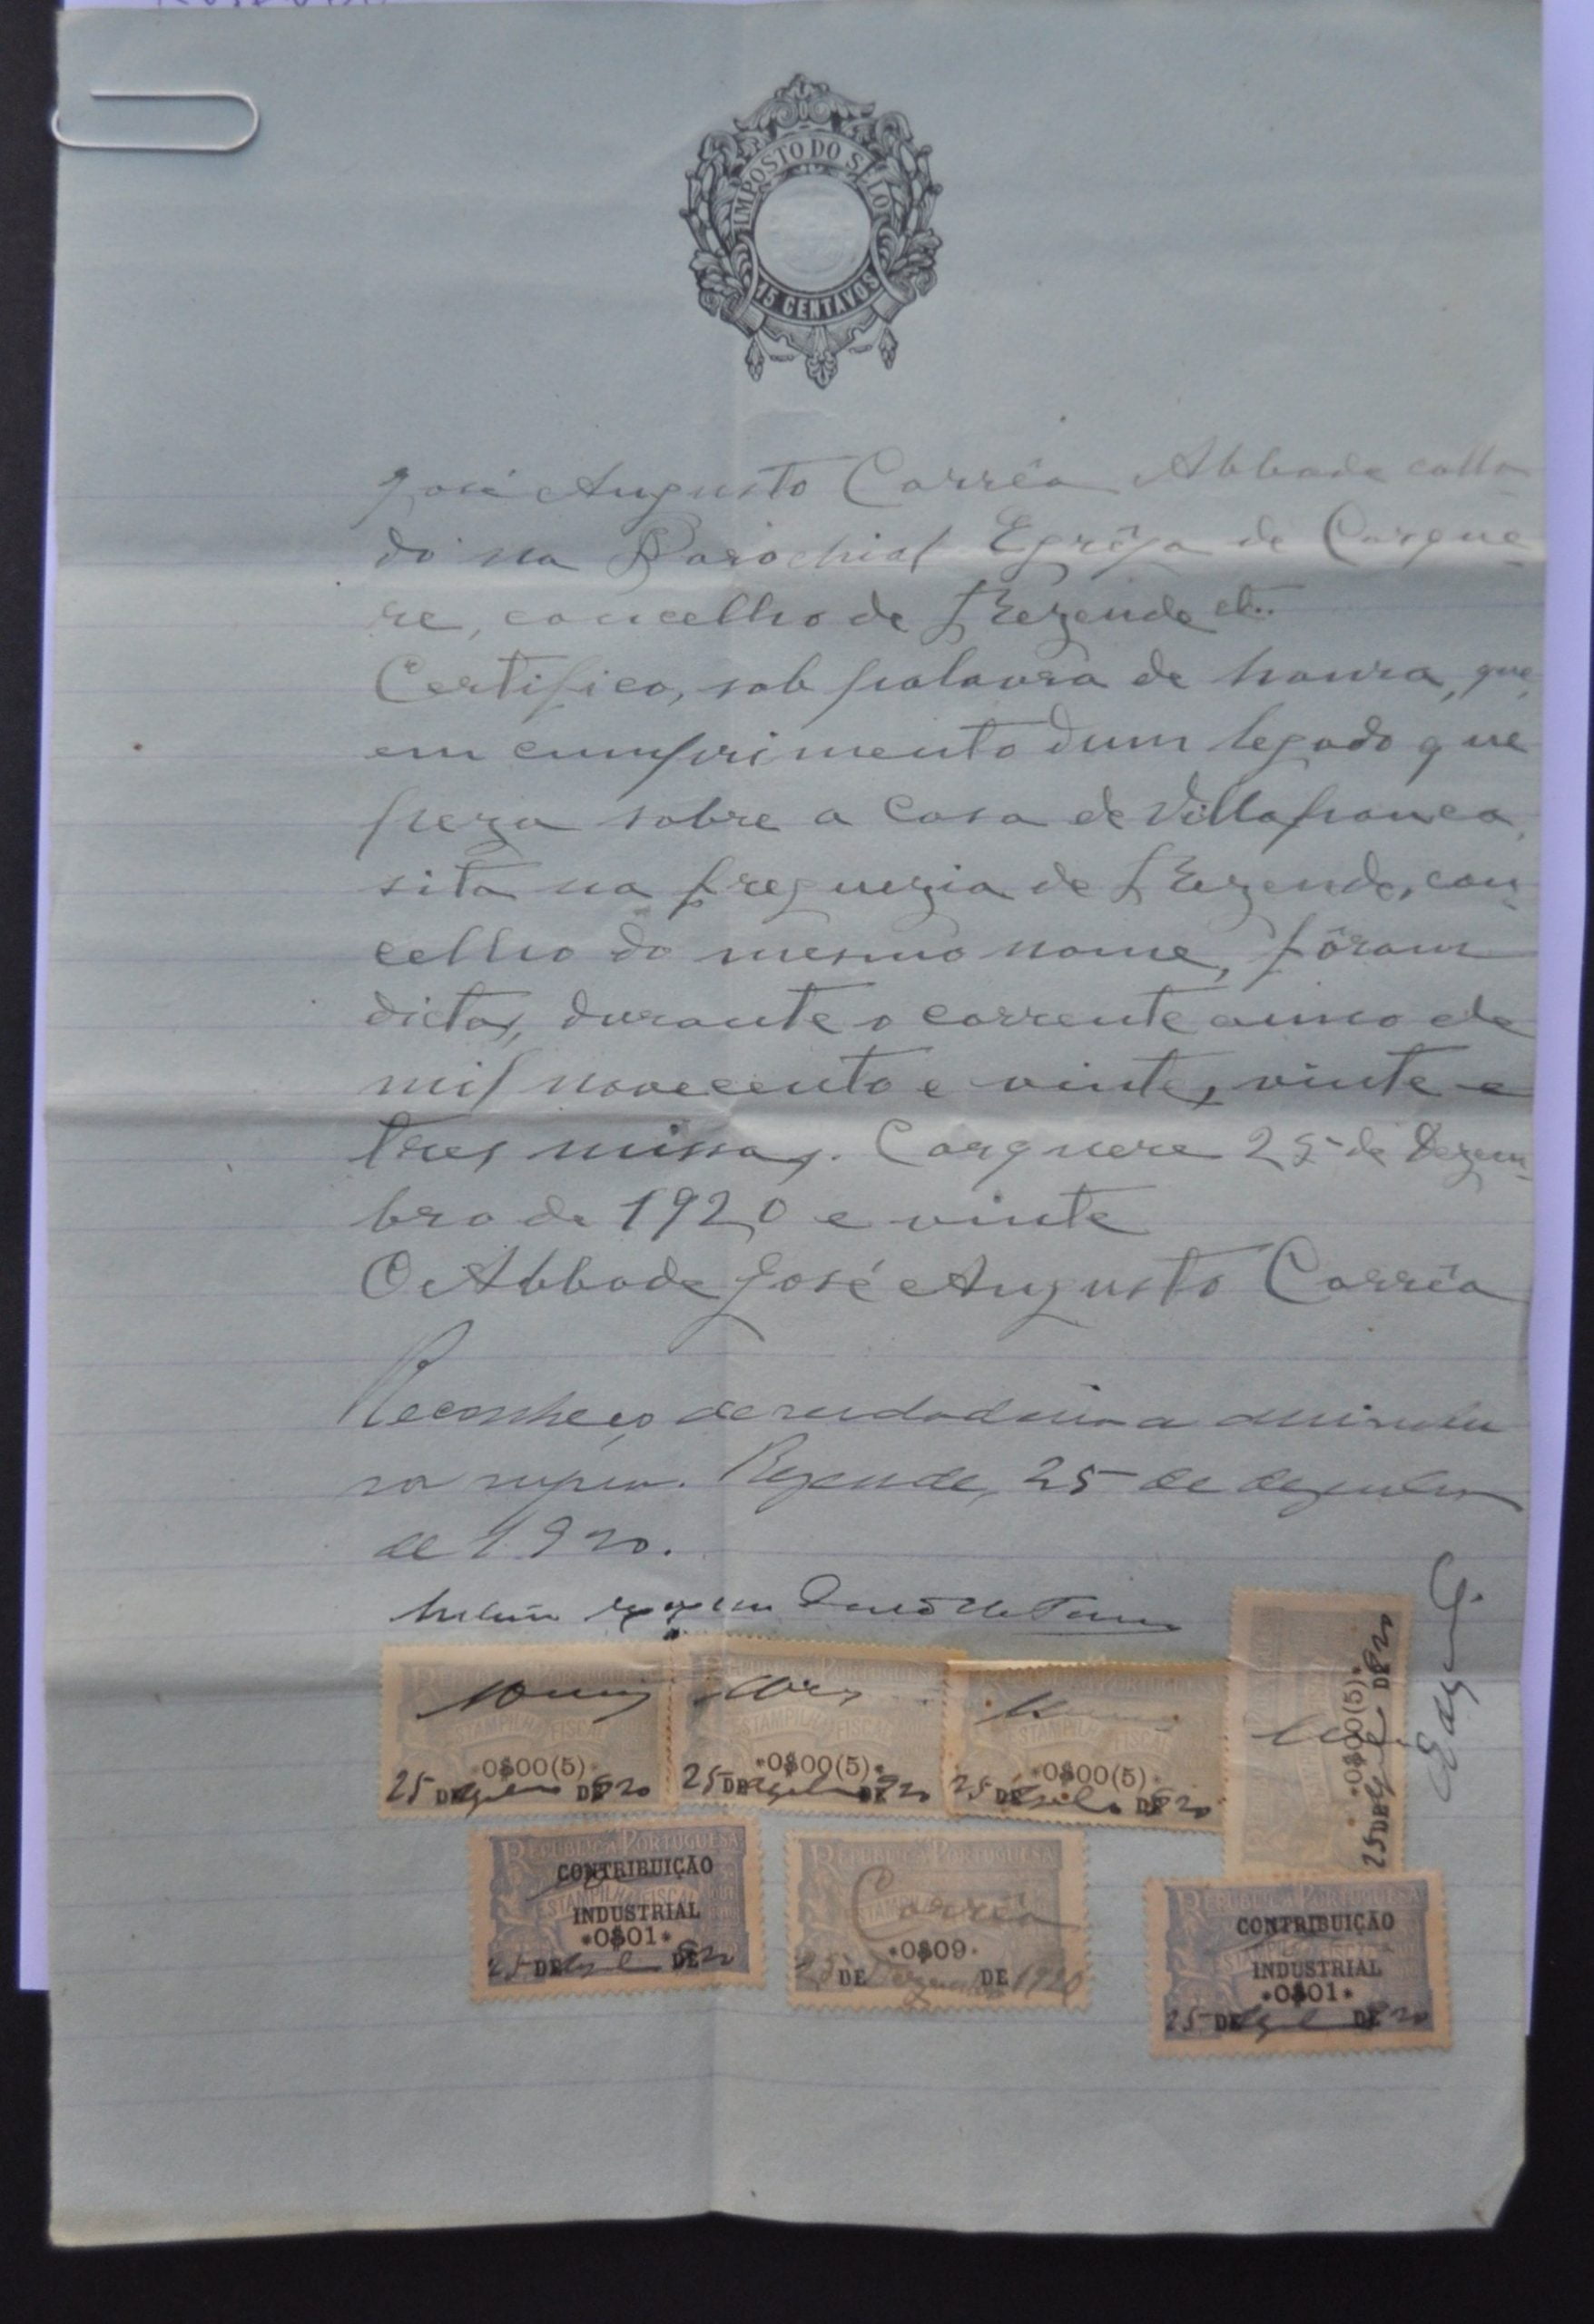 IMPOSTO DO SELO
15 CENTAVOS
José Augusto Corrêa Abbade colla-
do na Parochial Egrêja de Carque-
re, concelho de Rezende etc.
Certifico, sob palavra de honra, que,
em cumprimento dum legado que
peza sobre a casa de Villafranca,
sita na freguezia de Rezende, con-
celho do mesmo nome, fôram
dictas, durante o corrente anno de
mil novecento e vinte, vinte e
tres missas. Carquere 25 de Dezem-
bro de 1920 e vinte
O Abbade José Augusto Corrêa
Reconheço verdadeira a assignatu
ra supra. Rezende, 25 de dezembro
de 1920.
REPUBLICA PORTUGUESA
ESTAMPILHA FISCAL
*0$00(5)*
25 DE DE 920
REPUBLICA PORTUGUESA
ESTAMPILHA FISCAL
*0$00(5)*
25 DE DE 920
REPUBLICA PORTUGUESA
ESTAMPILHA FISCAL
*0$00(5)*
25 DE DE 920
*0$00(5)*
25 DE DE 920
REPUBLICA PORTUGUESA
CONTRIBUIÇÃO
ESTAMPILHA FISCAL
INDUSTRIAL
*0$01*
25 DE DE 920
REPUBLICA PORTUGUESA
Corrêa
*0$09*
25 DE Dezembro DE 1920
REPUBLICA PORTUGUESA
CONTRIBUIÇÃO
INDUSTRIAL
*0$01*
25 DE DE 920